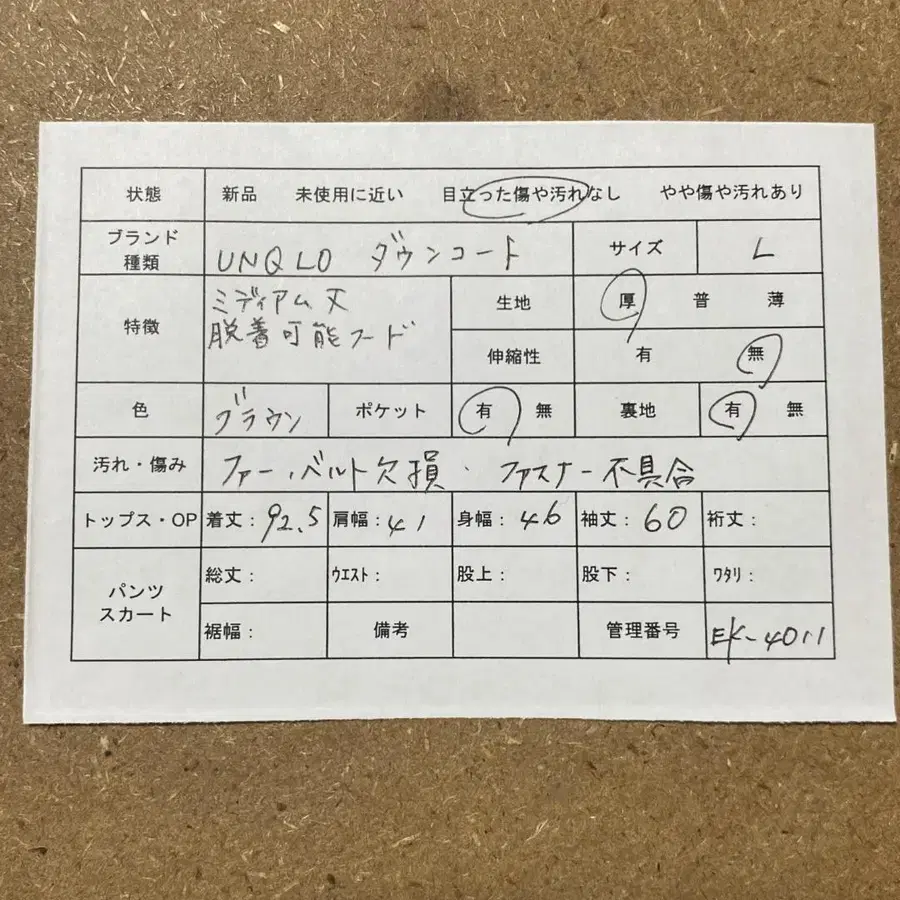 状態 新品 未使用に近い 目立った傷や汚れなし やや傷や汚れあり
ブランド
種類 UNQLO ダウンコート サイズ L
特徴 ミディアム丈
脱着可能フード
生地 厚 普 薄
伸縮性 有 無
色 ブラウン ポケット 有 無 裏地 有 無
汚れ・傷み ファー・ベルト欠損・ファスナー不具合
トップス・OP 着丈: 92.5 肩幅: 41 身幅: 46 袖丈: 60 裄丈:
パンツ
スカート
総丈: ウエスト: 股上: 股下: ワタリ:
裾幅: 備考 管理番号 EK-4011